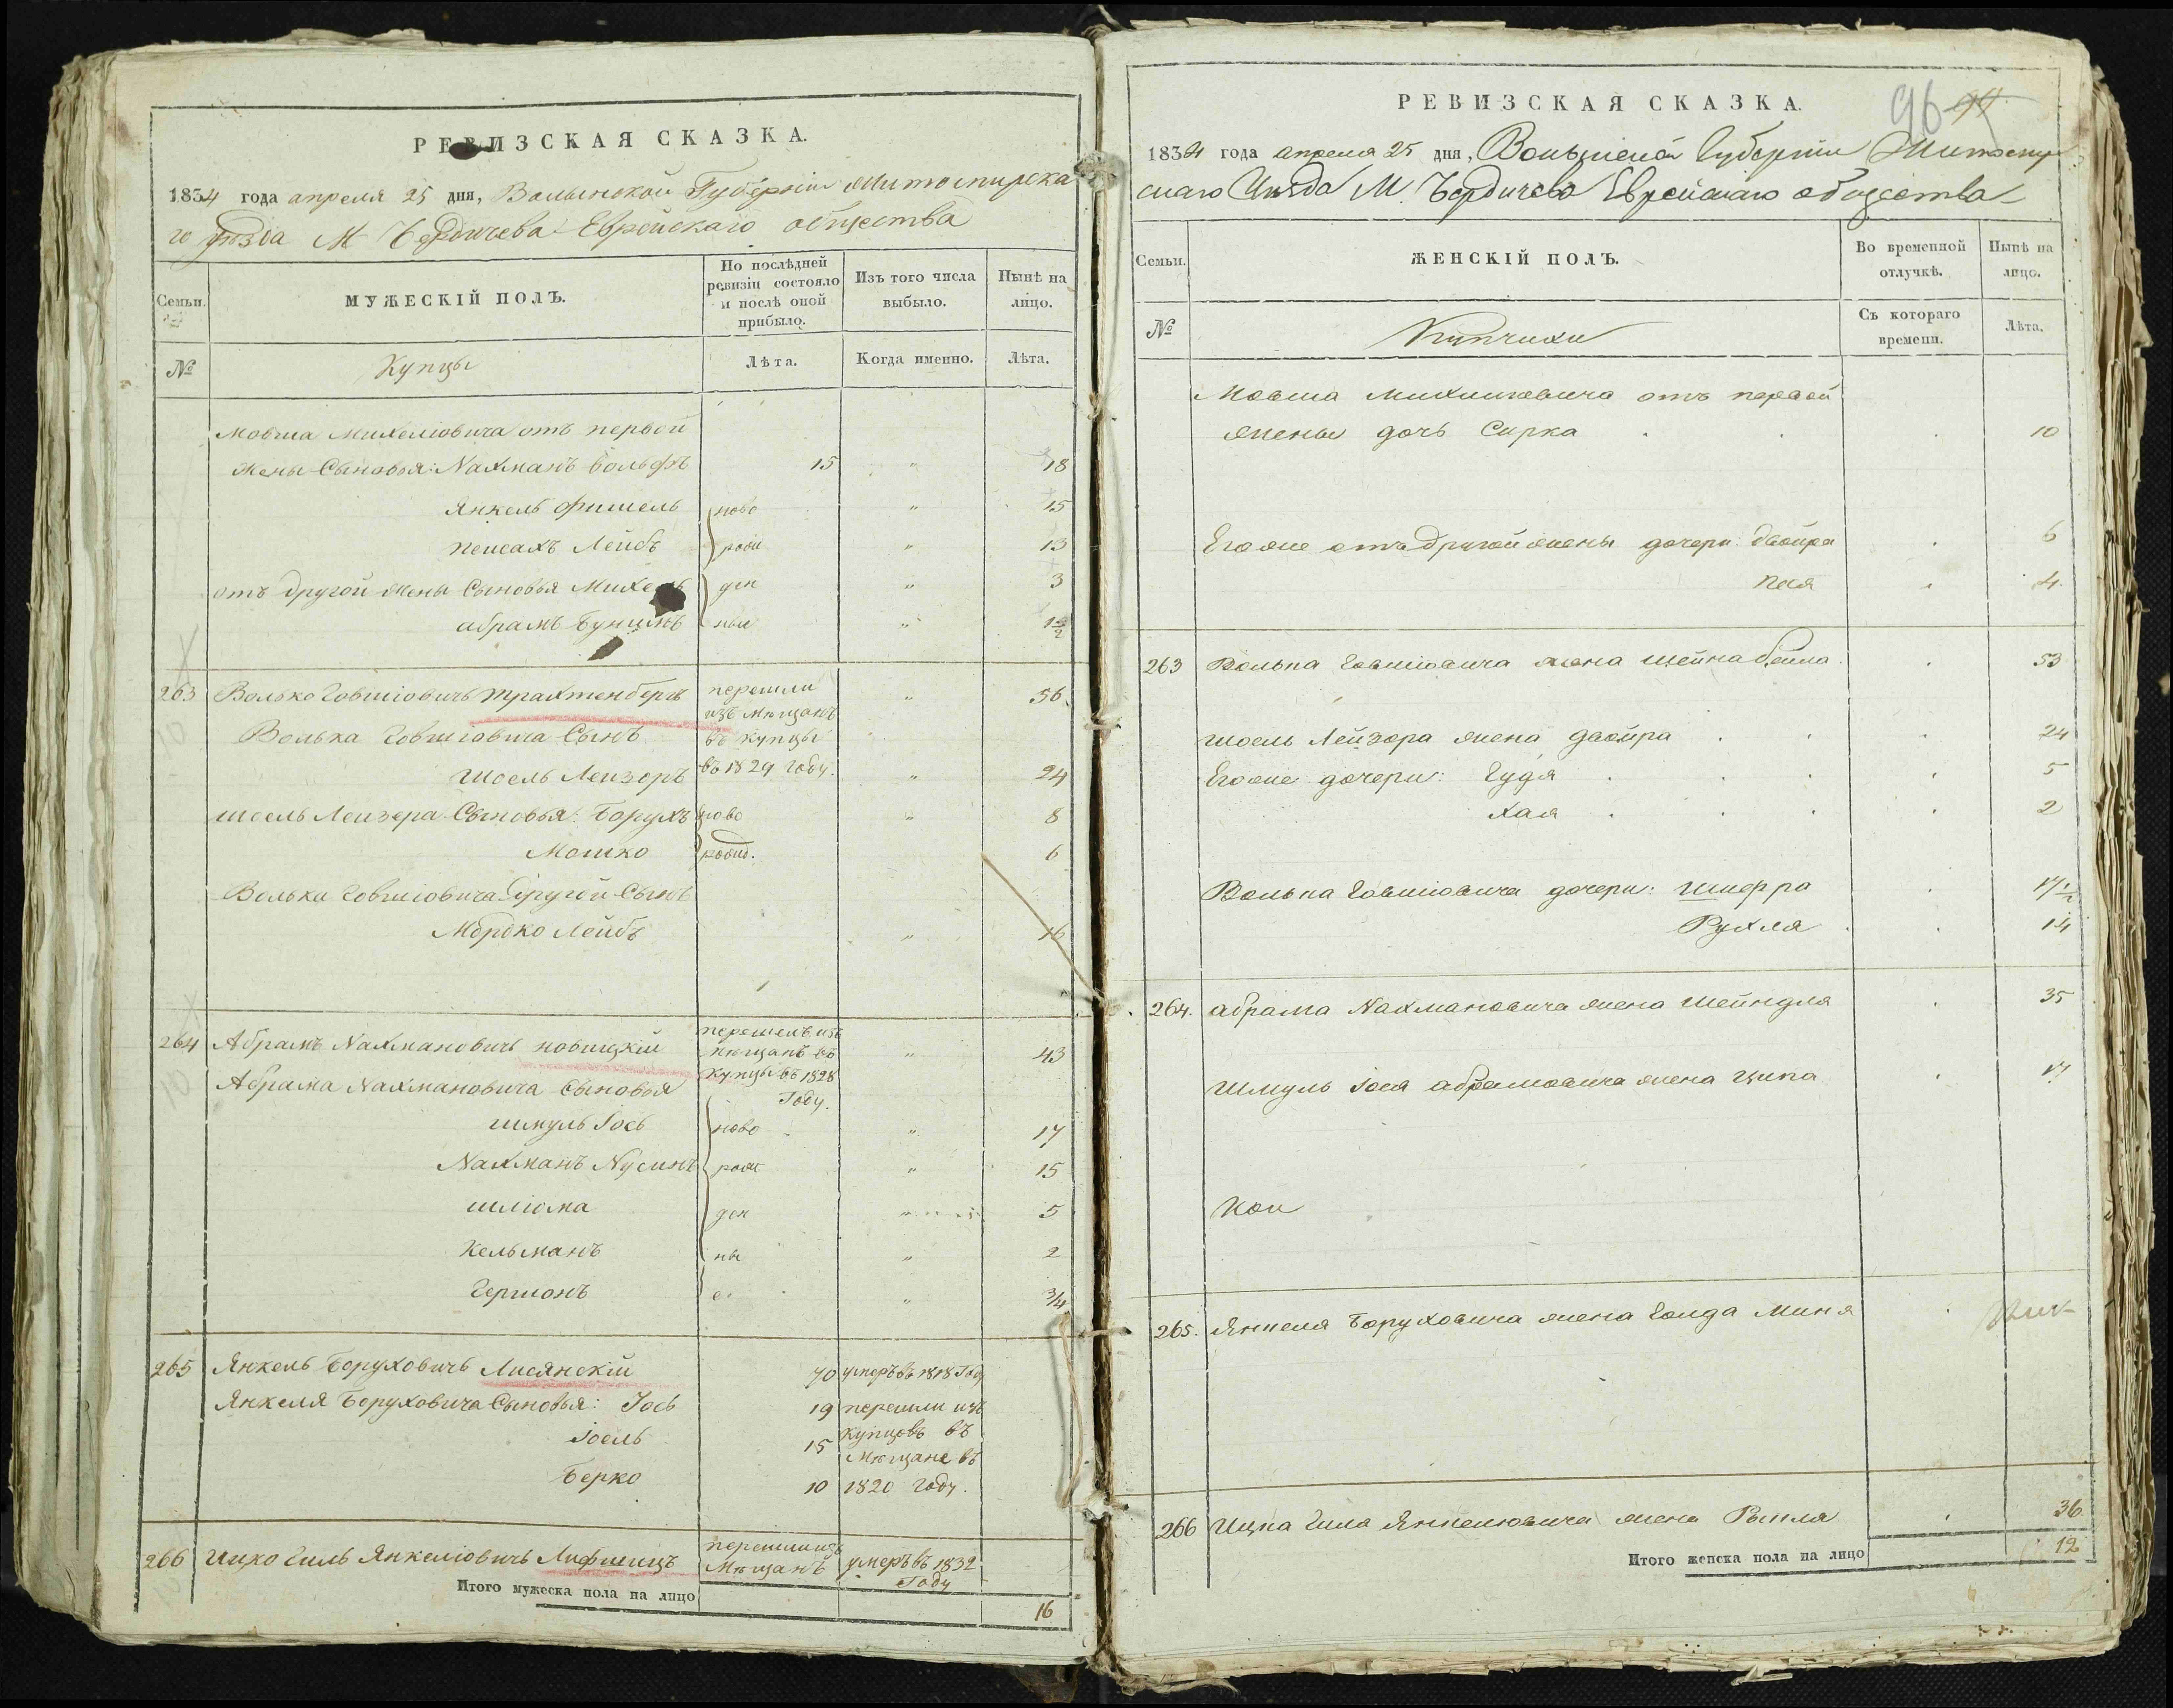 РЕВИЗСКАЯ СКАЗКА.
1834 года апреля 25 дня, Волынской Губерніи Житомирска
го уѣзда М Бердичева Еврейскаго общества
Семьи.
МУЖЕСКІЙ ПОЛЪ.
По послѣдней ревизіи состояло и послѣ оной прибыло.
Изъ того числа выбыло.
Нынѣ на лицо.
№
Купцы
Лѣта.
Когда именно.
Лѣта.
Мовша Михеліовича отъ первой
жены Сыновья: Нахманъ Вольфъ 15 " 18
Янкель Фишель ново " 15
Пейсахъ Лейбъ рож " 13
отъ другой жены Сыновья Михель ден " 3
абрамъ Бунимъ ные " 1½
263 Волько Іовшіовичъ Трахтенбергъ перешли " 56.
изъ мѣщанъ
Волька Іовшіовича Сынъ въ купцы
Шоель Лейзоръ въ 1829 году. " 24
Шоель Лейзера Сыновья: Борухъ ново " 8
Мошко рожд. 6
Волька Іовшіовича другой Сынъ
Мордко Лейбъ " 16
264 Абрамъ Нахмановичъ Новицкій перешелъ изъ мѣщанъ въ " 43
Абрама Нахмановича Сыновья купцы въ 1828
Году.
Шмуль Іось ново " 17
Нахманъ Нусинъ рож " 15
Шліома ден " 5
Кельманъ ны " 2
Гершонъ е. " 3/4
265 Янкель Боруховичъ Лисянскій 70 умеръ въ 1818 Году
Янкеля Боруховича Сыновья: Іось 19 перешли изъ
Іоель 15 Купцовъ въ
Мѣщане въ
Берко 10 1820 Году.
266 Ицко Гиль Янкеліовичъ Лифшицъ перешли изъ Мѣщанъ умеръ въ 1832 Году
Итого мужеска пола на лицо 16
96 94
РЕВИЗСКАЯ СКАЗКА.
1834 года апреля 25 дня, Волынской Губерніи Житомир
скаго Уѣзда М. Бердичева Еврейскаго общества
Семьи.
ЖЕНСКІЙ ПОЛЪ.
Во временной отлучкѣ.
Нынѣ на лицо.
№
Купчихи
Съ котораго времени.
Лѣта.
Мовша Михеліовича отъ первой
жены дочь Сурка 10
Его же отъ другой жены дочери: Двойра 6
Пея 4.
263 Волька Іовшіовича жена Шейна бейла 53
Шоель Лейзора жена двойра 24
Его же дочери: Гудя 5
Хая 2
Волька Іовшіовича дочери: Шифра 17½
Рухля 14
264. абрама Нахмановича жена Шейндля 35
Шмуль Іося абрамовича жена Ципа 17
265. Янкеля Боруховича жена Голда Миня
266 Ицка Гиля Янкеліовича жена Рыкля 36
Итого женска пола на лицо 12